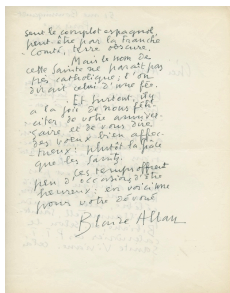 sent le complot espagnol,
peut-être par la Franche
Comté, terre obscure,
Mais le nom de
cette Sainte ne paraît pas
très catholique; l'on
dirait celui d'une fée.
Et surtout, il y
a la joie de nous féli-
citer de votre anniver-
saire et de vous dire
des vœux bien affec-
tueux: plutôt la
que les Saints.
Les temps offrent
peu d'occasions d'être
heureux: en voici une
pour votre dévoué
Blaise Allan